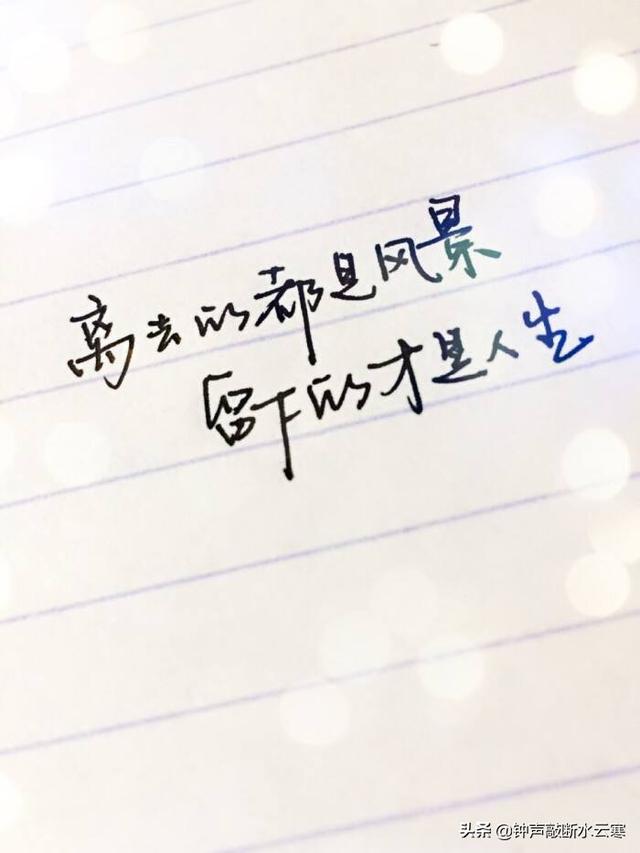 离去的都是风景
留下的才是人生
头条 @钟声敲断水云寒